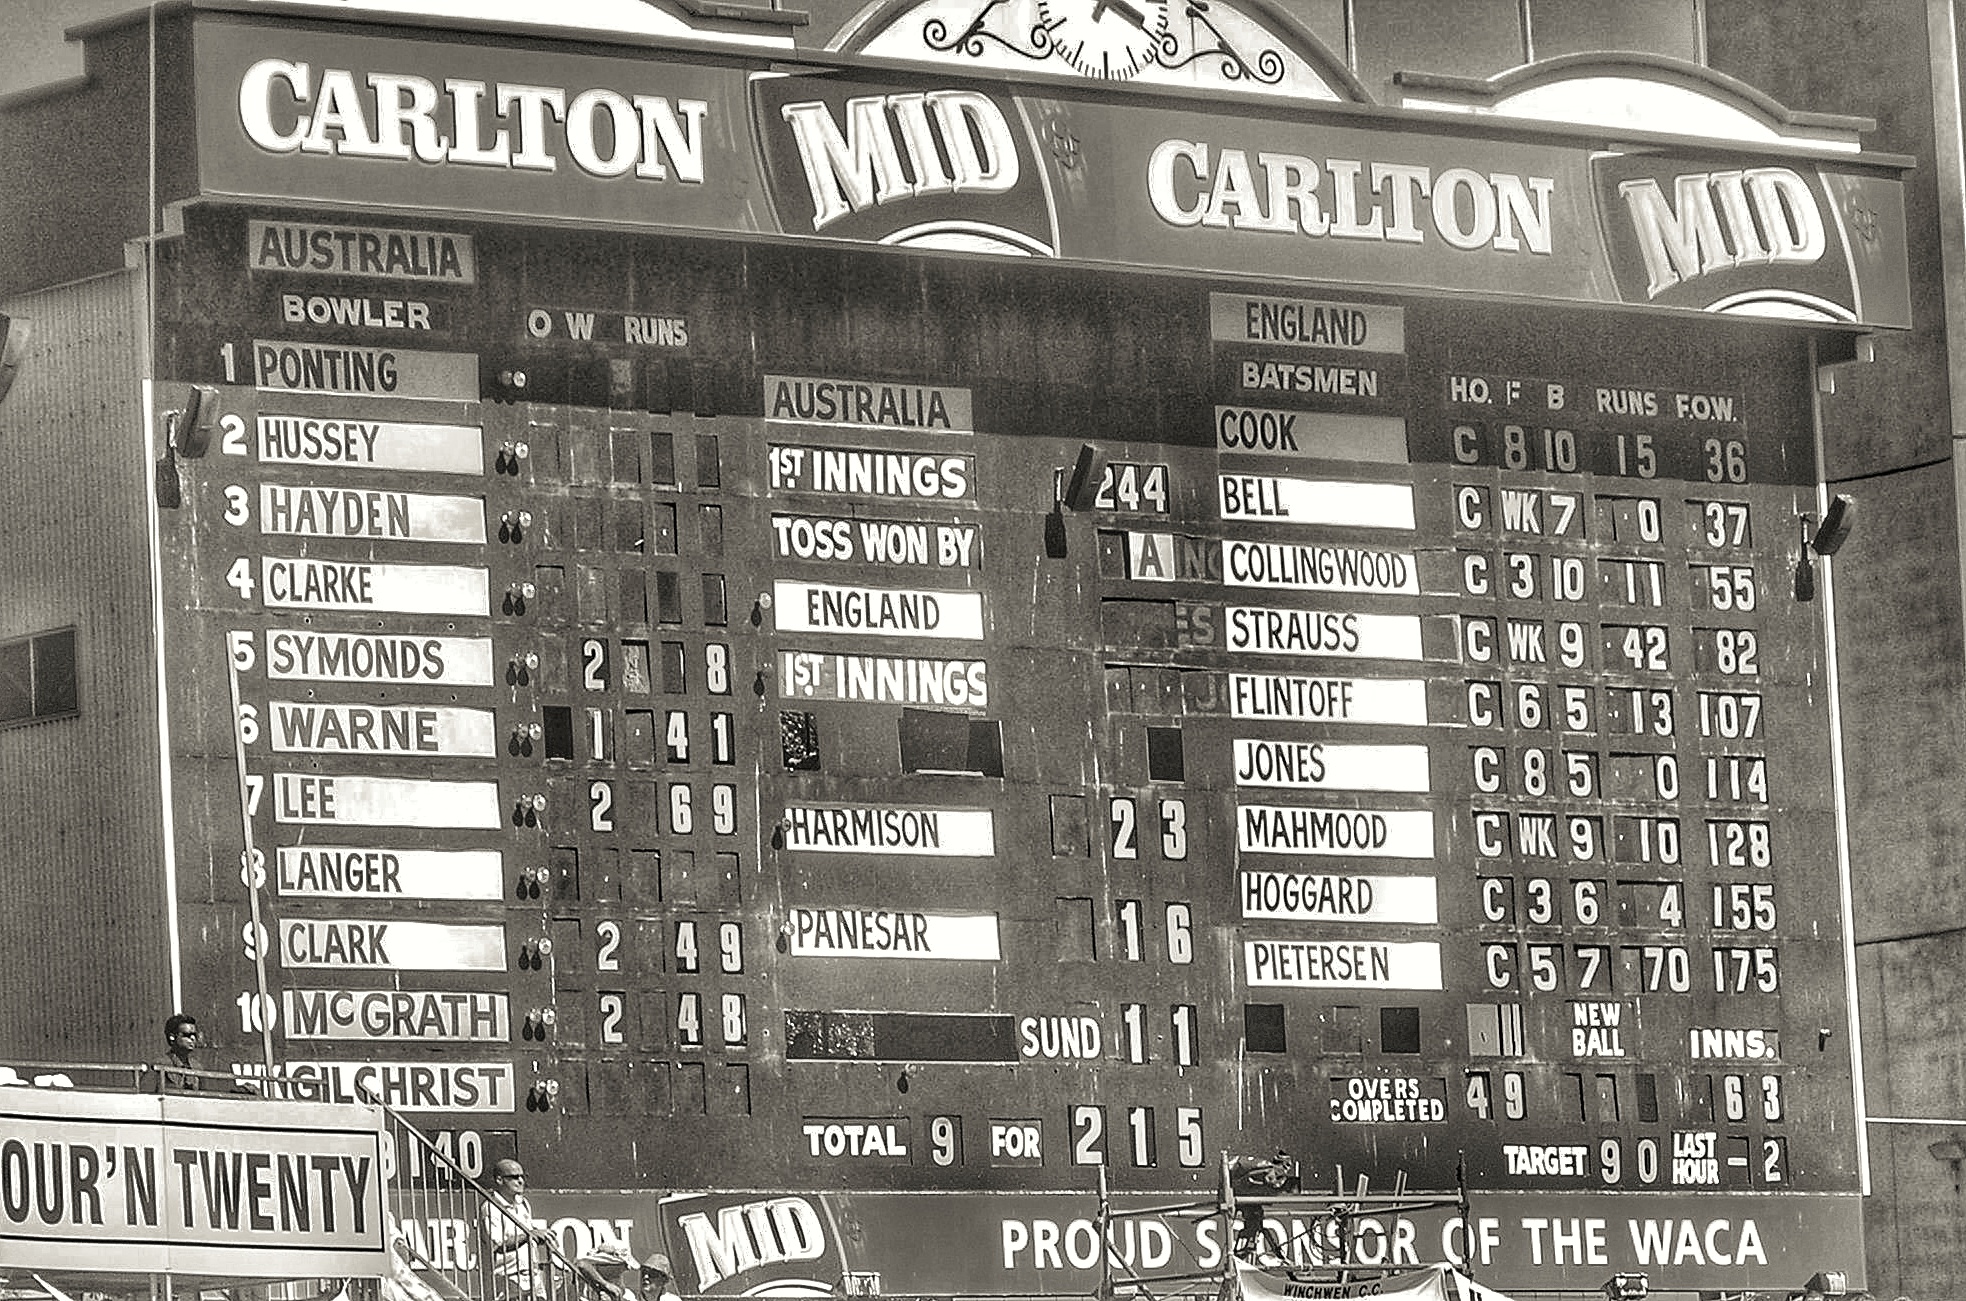 CARLTON MID CARLTON MID
AUSTRALIA
BOWLER O W RUNS
1 PONTING
2 HUSSEY
3 HAYDEN
4 CLARKE
5 SYMONDS 2 8
6 WARNE 1 41
7 LEE 2 69
8 LANGER
9 CLARK 2 49
10 McGRATH 2 48
WK GILCHRIST
140
AUSTRALIA
1ST INNINGS 244
TOSS WON BY A
ENGLAND
1ST INNINGS
HARMISON 23
PANESAR 16
SUND 11
TOTAL 9 FOR 215
ENGLAND
BATSMEN H.O. F B RUNS F.O.W.
COOK C 8 10 15 36
BELL C WK 7 0 37
COLLINGWOOD C 3 10 11 55
STRAUSS C WK 9 42 82
FLINTOFF C 6 5 13 107
JONES C 8 5 0 114
MAHMOOD C WK 9 10 128
HOGGARD C 3 6 4 155
PIETERSEN C 5 7 70 175
NEW BALL INNS.
OVERS COMPLETED 49 63
TARGET 90 LAST HOUR - 2
OUR'N TWENTY
MID PROUD SPONSOR OF THE WACA
WINCHWEN C.C.